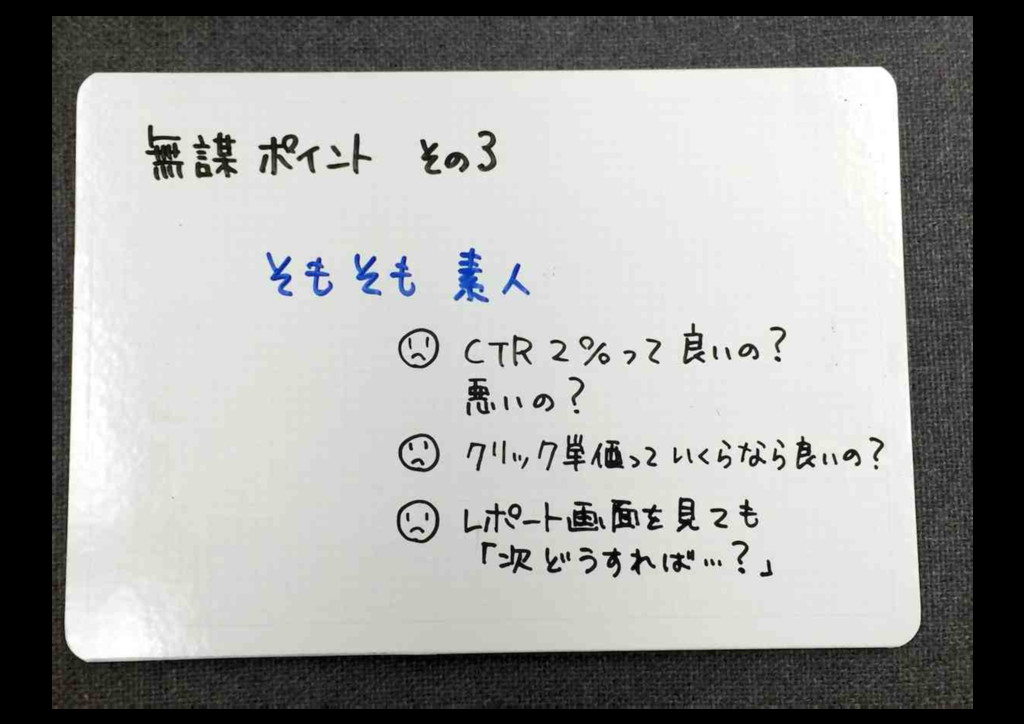 無謀ポイント その3
そもそも素人
CTR 2%って良いの?
悪いの?
クリック単価っていくらなら良いの?
レポート画面を見ても
「次どうすれば…?」